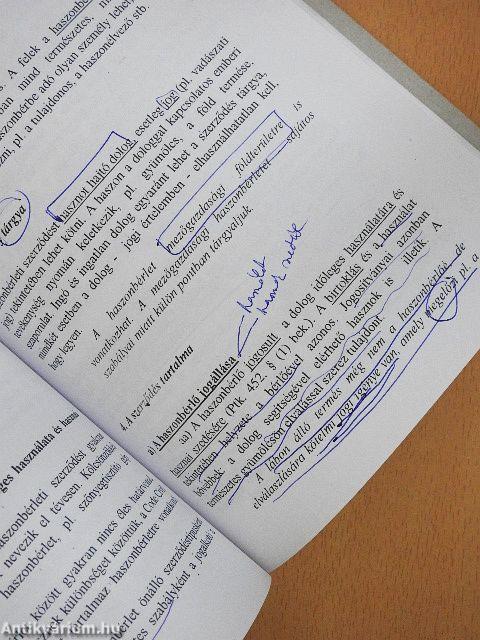 . A felek a haszonbérl
ban mind természetes, mi
aszonbérbe adó olyan személy lehet,
zni, pl. a tulajdonos, a haszonélvező stb.
tárgya
nbérleti szerződést hasznot hajtó dolog, esetleg jog (pl. vadászati
jog) tekintetében lehet kötni. A haszon a dologgal kapcsolatos emberi
tevékenység nyomán keletkezik, pl. gyümölcs, a föld termése,
szaporulat. Ingó és ingatlan dolog egyaránt lehet a szerződés tárgya,
mindkét esetben a dolog - jogi értelemben - elhasználhatatlan kell,
hogy legyen.
A haszonbérlet mezőgazdasági földterületre is
vonatkozhat. A mezőgazdasági haszonbérletet sajátos
szabályai miatt külön pontban tárgyaljuk.
4. A szerződés tartalma
a) A haszonbérlő jogállása
aa) A haszonbérlő jogosult a dolog időleges használatára és
hasznai szedésére (Ptk. 452. § (1) bek.). A birtoklás és a használat
tekintetében helyzete a bérlőével azonos. Jogosítványai azonban
bővebbek: a dolog segítségével elérhető hasznok is illetik. A
természetes gyümölcsön elválással szerez tulajdont.
A lábon álló termés még nem a haszonbérlőé, de
elválasztására kötelmi jogi igénye van, amely megelőzi pl. a
ges használata és haszna
haszonbérleti szerződést gyakra
nevezik el tévesen. Kölcsönözhe
haszonbérlet, pl. szőnyegtisztító gé
között gyakran nincs éles határvonal,
különbséget közöttük a Code Civil
talmaz haszonbérletre vonatkozó
érlet önálló szerződéstípusként
tes szabályként a jogalkotó
Antikvárium.hu